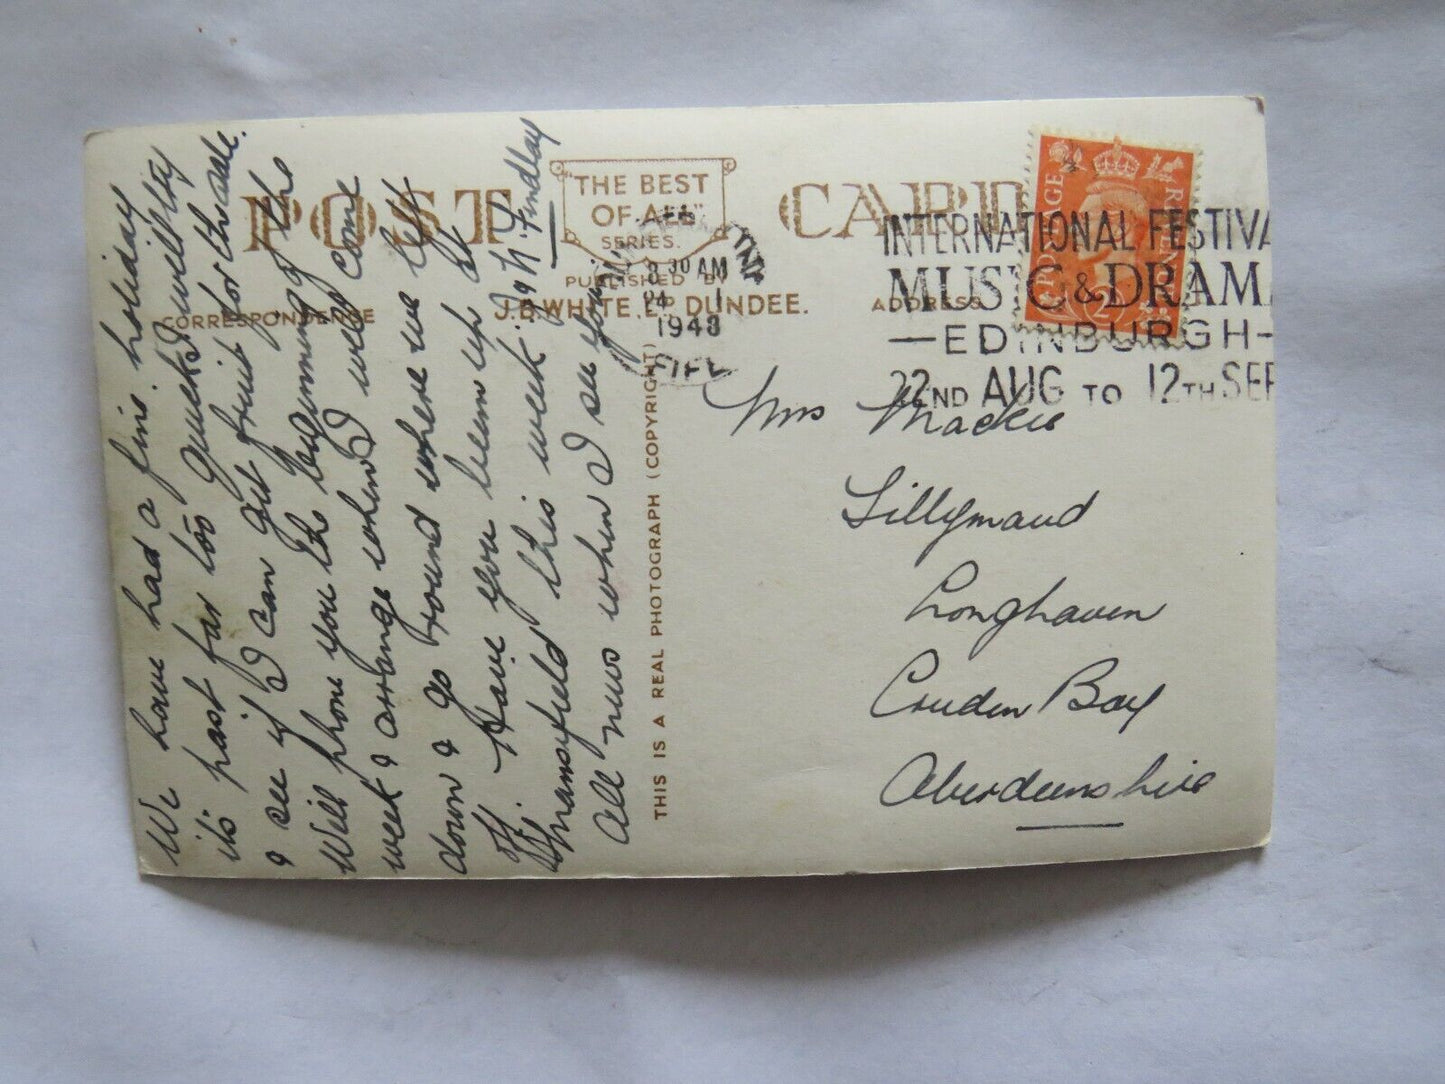 POST CARD
"THE BEST
OF ALL"
SERIES.
PUBLISHED BY
J.B. WHITE. LTD DUNDEE.
CORRESPONDENCE
ADDRESS
THIS IS A REAL PHOTOGRAPH (COPYRIGHT)
POSTAGE REVENUE
8 30 AM
24
1948
FIFE
INTERNATIONAL FESTIVA
MUSIC & DRAMA
—EDINBURGH—
22ND AUG TO 12TH SEP
We have had a fine holiday
its past far too quickly will try
& see if I can get fruit for the sale.
Will phone you the beginning of the
week & arrange when I will come
down & go round where we left
off. Have you been up at
Mansfield this week.
All news when I see you.
J & N. Findlay
Mrs Mackie
Lillymaud
Longhaven
Cruden Bay
Aberdeenshire